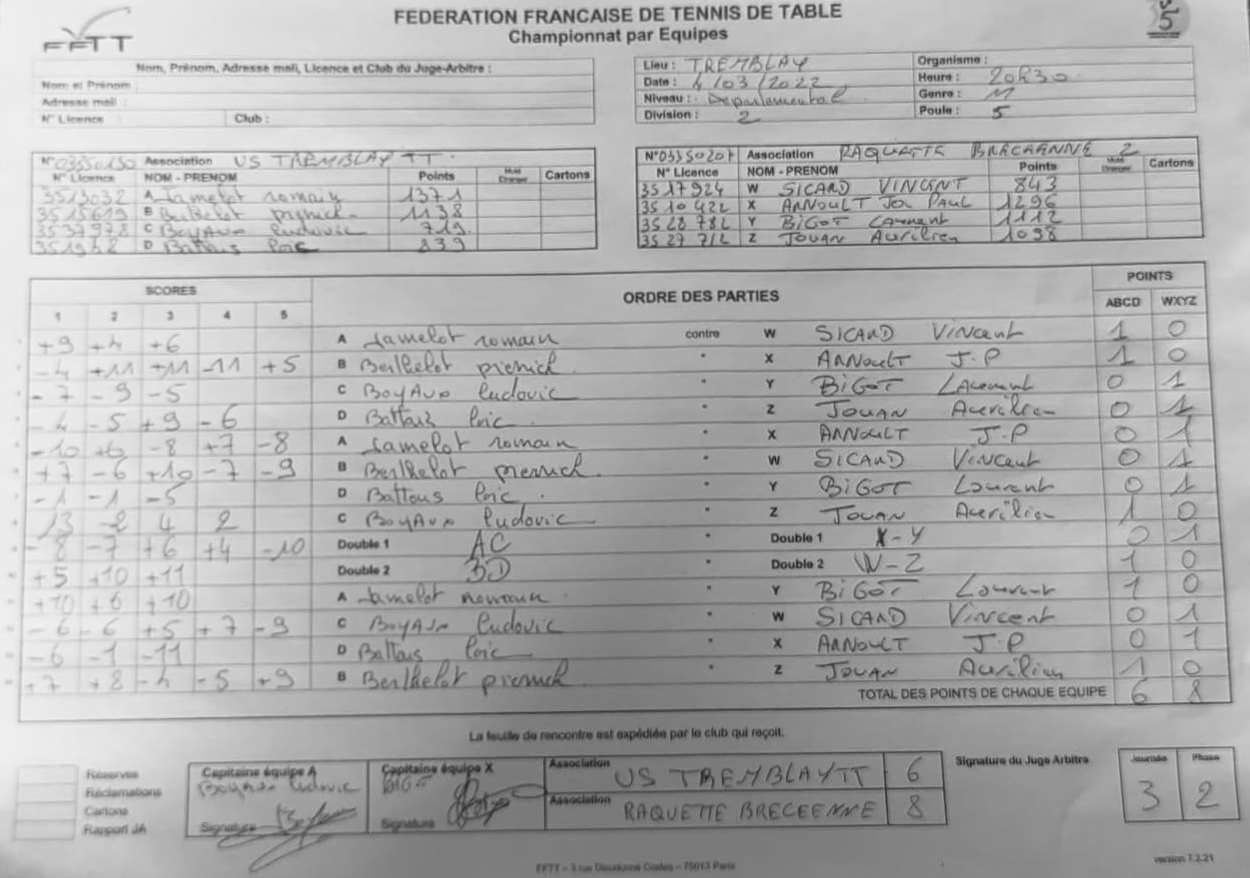 FEDERATION FRANCAISE DE TENNIS DE TABLE
Championnat par Equipes
FFTT
Nom, Prénom, Adresse mail, Licence et Club du Juge-Arbitre :
Nom et Prénom :
Adresse mail :
N° Licence : Club :
Lieu : TREMBLAY Organisme :
Date : 4/03/2022 Heure : 20h30
Niveau : Departemental Genre : M
Division : 2 Poule : 5
N°03350130 Association US TREMBLAY TT
N° Licence NOM - PRENOM Points Cartons
3513032 A Jamelot romain 1371
3515619 B Berthelot pierrick 1138
3537978 C BoyAux ludovic 719
351948 D Battais loic 839
N°03350207 Association RAQUETTE BRECEENNE 2
N° Licence NOM - PRENOM Points Cartons
3517924 W SICARD VINCENT 843
3510422 X ARNOULT Jea PAUL 1296
3528782 Y BIGOT Laurent 1112
3527712 Z JOUAN Aurélien 1098
SCORES ORDRE DES PARTIES POINTS
1 2 3 4 5 ABCD WXYZ
+9 +4 +6 A Jamelot romain contre W SICARD Vincent 1 0
-4 +11 +11 -11 +5 B Berthelot pierrick " X ARNOULT J.P 1 0
-7 -9 -5 C BoyAux ludovic " Y BIGOT Laurent 0 1
-4 -5 +9 -6 D Battais loic " Z JOUAN Aurélien 0 1
-10 +6 -8 +7 -8 A Jamelot romain " X ARNOULT J.P 0 1
+7 -6 +10 -7 -9 B Berthelot pierrick " W SICARD Vincent 0 1
-1 -1 -5 D Battais loic " Y BIGOT Laurent 0 1
13 -2 4 2 C BoyAux ludovic " Z JOUAN Aurélien 1 0
-8 -7 +6 +4 -10 Double 1 AC Double 1 X-Y 0 1
+5 +10 +11 Double 2 BD Double 2 W-Z 1 0
+10 +6 +10 A Jamelot romain " Y BIGOT Laurent 1 0
-6 -6 +5 +7 -9 C BoyAux ludovic " W SICARD Vincent 0 1
-6 -1 -11 D Battais loic " X ARNOULT J.P 0 1
+7 +8 -4 -5 +9 B Berthelot pierrick " Z JOUAN Aurélien 1 0
TOTAL DES POINTS DE CHAQUE EQUIPE 6 8
La feuille de rencontre est expédiée par le club qui reçoit.
Réserves
Réclamations
Cartons
Rapport JA
Capitaine équipe A
BoyAux ludovic
Signature
Capitaine équipe X
BIGOT
Signature
Association US TREMBLAY TT 6
Association RAQUETTE BRECEENNE 8
Signature du Juge Arbitre
Journée Phase
3 2
FFTT – 3 rue Dieudonné Costes – 75013 Paris
version 7.2.21